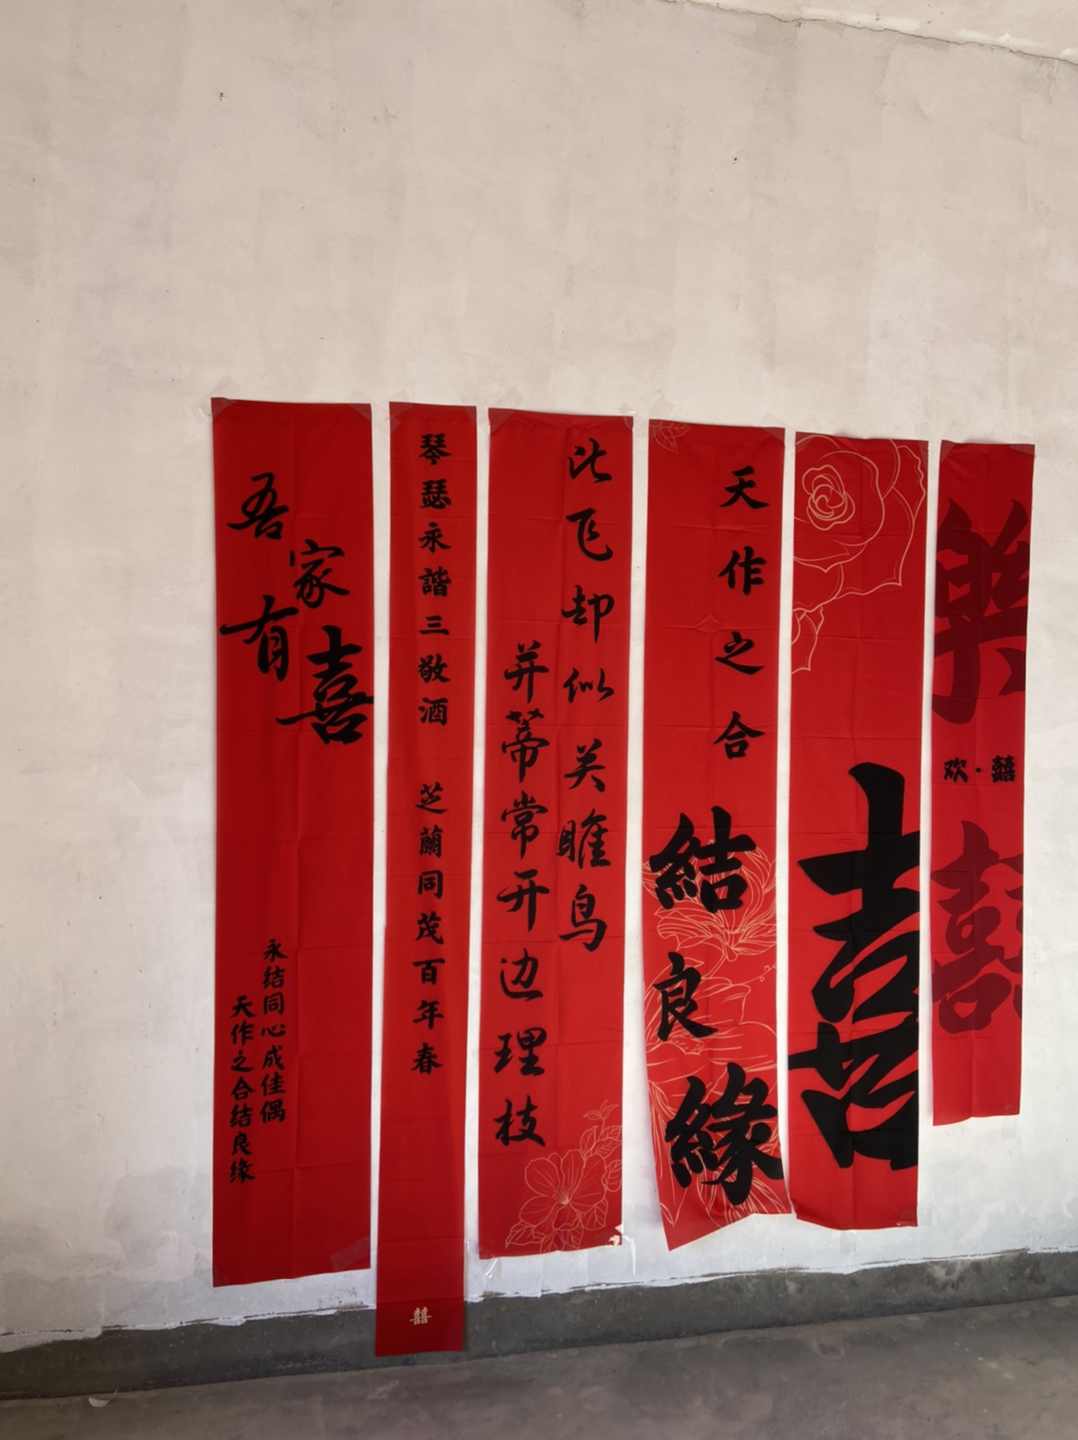 吾家有喜
永结同心成佳偶
天作之合结良缘
琴瑟永諧三敬酒 芝蘭同茂百年春
囍
比飞却似关雎鸟
并蒂常开边理枝
天作之合
結良緣
喜
樂
欢·囍
囍